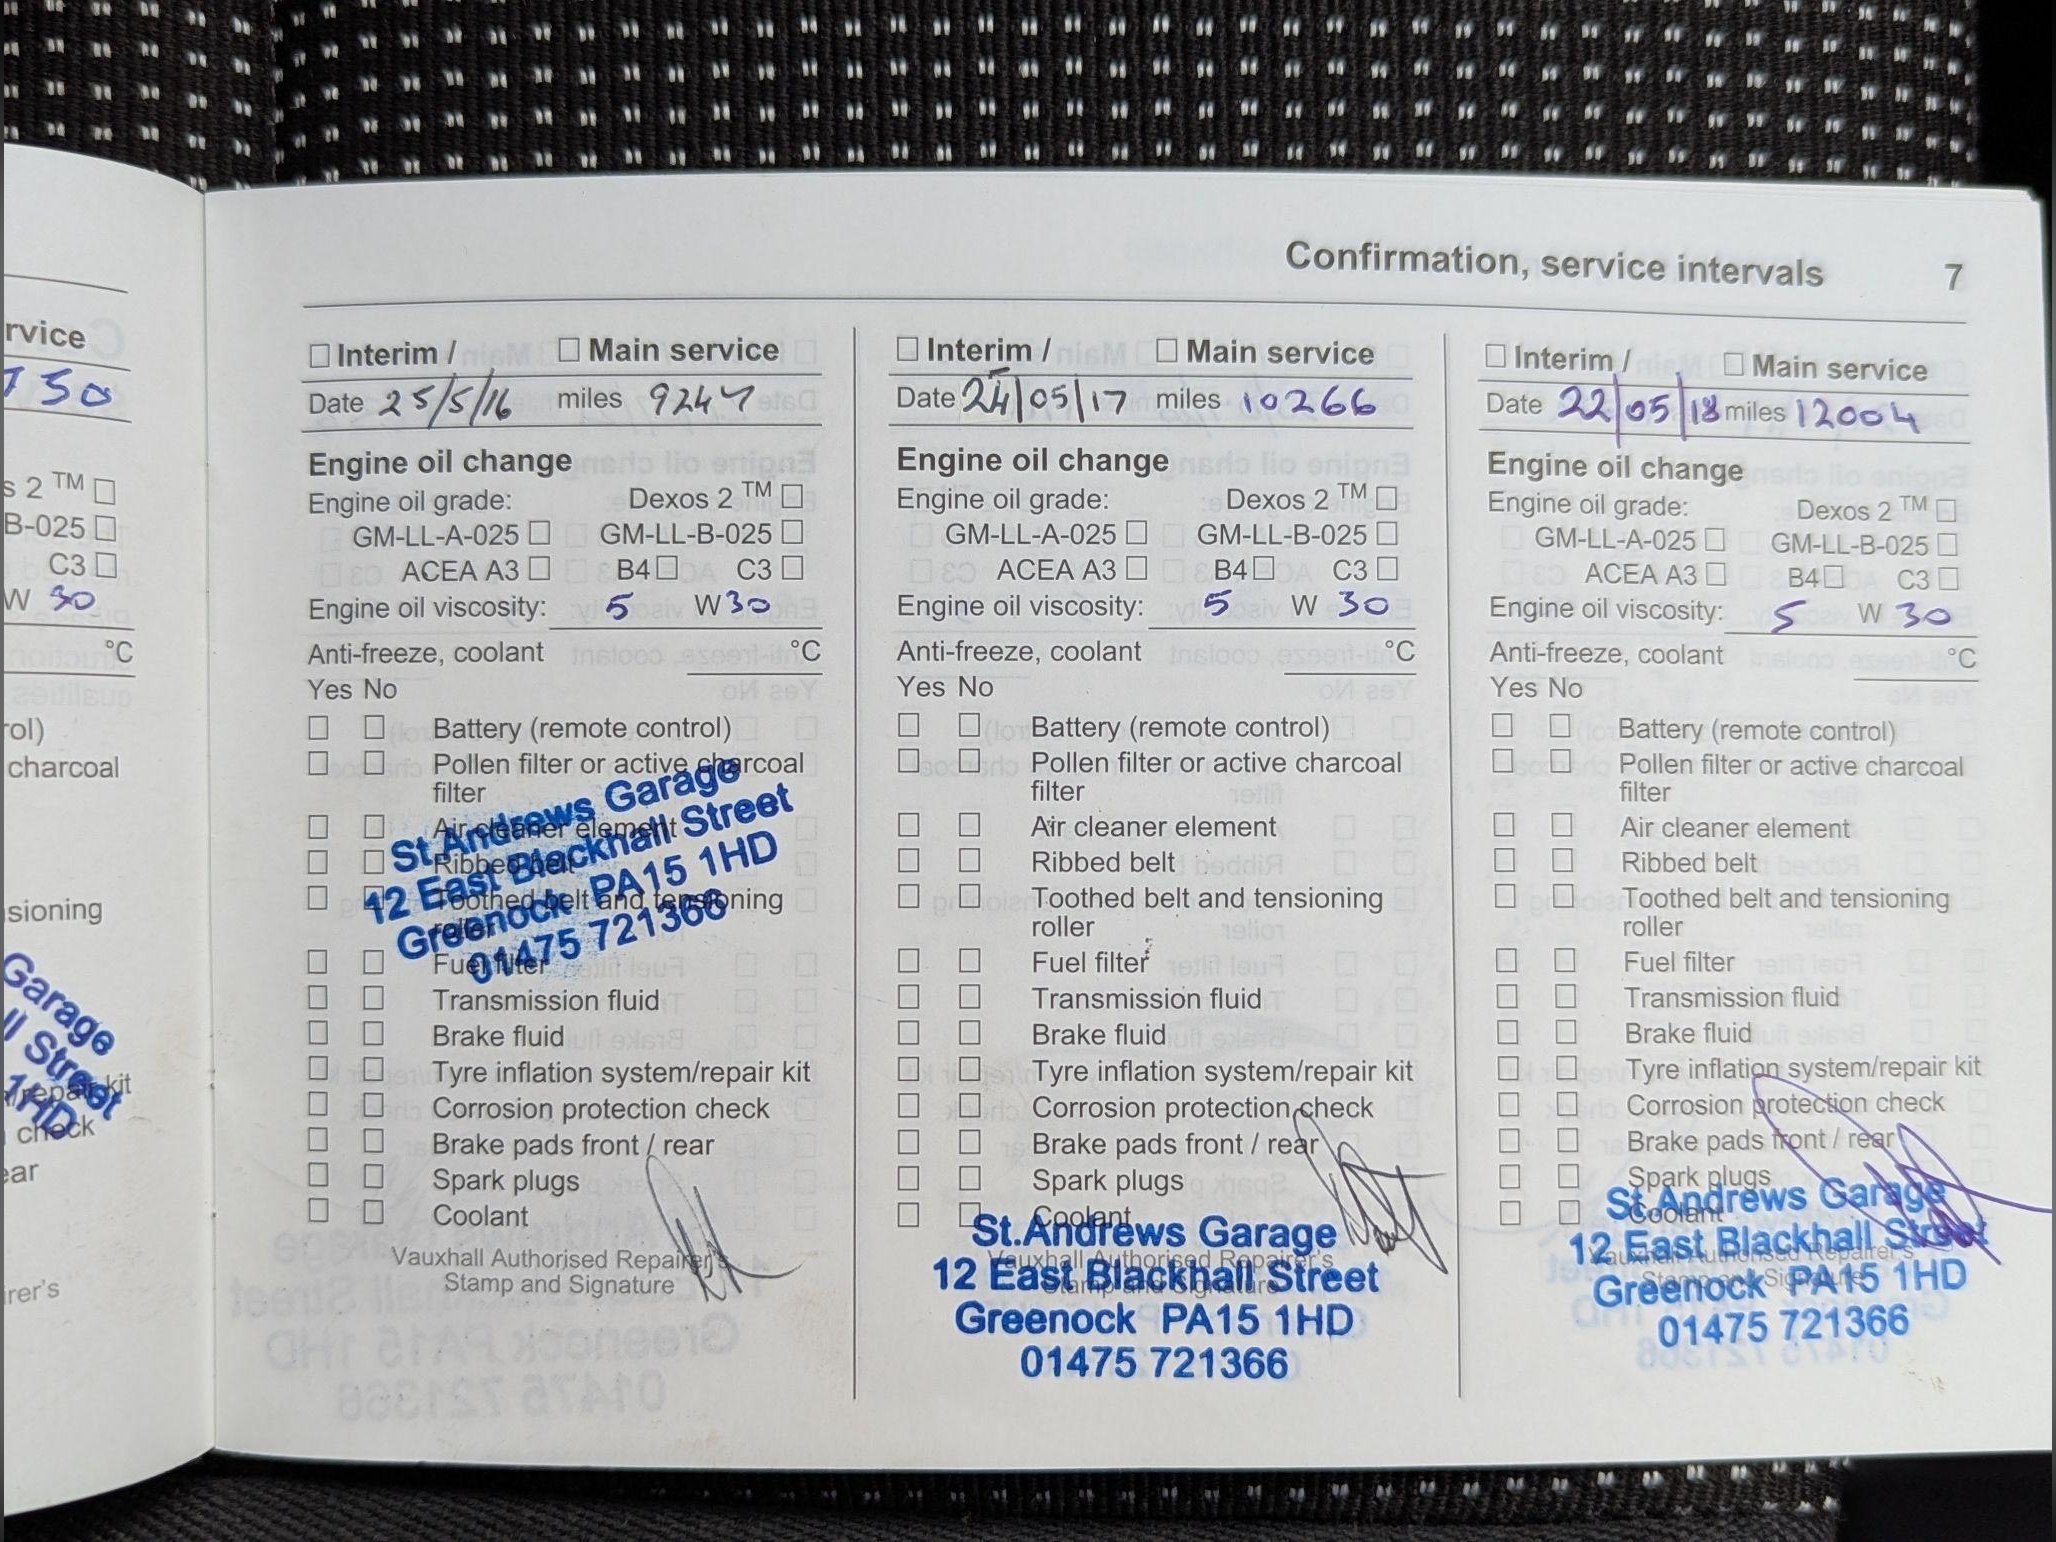 Confirmation, service intervals 7
rvice
750
s 2 ™
B-025
C3
W 30
°C
rol)
charcoal
sioning
Garage
ll Street
1HD
/repair kit
check
ear
irer's
Interim / Main service
Date 25/5/16 miles 9247
Engine oil change
Engine oil grade: Dexos 2 ™
GM-LL-A-025 GM-LL-B-025
ACEA A3 B4 C3
Engine oil viscosity: 5 W 30
Anti-freeze, coolant °C
Yes No
Battery (remote control)
Pollen filter or active charcoal
filter
Air cleaner element
Ribbed belt
Toothed belt and tensioning
roller
Fuel filter
Transmission fluid
Brake fluid
Tyre inflation system/repair kit
Corrosion protection check
Brake pads front / rear
Spark plugs
Coolant
Vauxhall Authorised Repairer's
Stamp and Signature
St.Andrews Garage
12 East Blackhall Street
Greenock PA15 1HD
01475 721366
Interim / Main service
Date 24/05/17 miles 10266
Engine oil change
Engine oil grade: Dexos 2 ™
GM-LL-A-025 GM-LL-B-025
ACEA A3 B4 C3
Engine oil viscosity: 5 W 30
Anti-freeze, coolant °C
Yes No
Battery (remote control)
Pollen filter or active charcoal
filter
Air cleaner element
Ribbed belt
Toothed belt and tensioning
roller
Fuel filter
Transmission fluid
Brake fluid
Tyre inflation system/repair kit
Corrosion protection check
Brake pads front / rear
Spark plugs
Coolant
Vauxhall Authorised Repairer's
Stamp and Signature
St.Andrews Garage
12 East Blackhall Street
Greenock PA15 1HD
01475 721366
Interim / Main service
Date 22/05/18 miles 12004
Engine oil change
Engine oil grade: Dexos 2 ™
GM-LL-A-025 GM-LL-B-025
ACEA A3 B4 C3
Engine oil viscosity: 5 W 30
Anti-freeze, coolant °C
Yes No
Battery (remote control)
Pollen filter or active charcoal
filter
Air cleaner element
Ribbed belt
Toothed belt and tensioning
roller
Fuel filter
Transmission fluid
Brake fluid
Tyre inflation system/repair kit
Corrosion protection check
Brake pads front / rear
Spark plugs
Coolant
Vauxhall Authorised Repairer's
Stamp and Signature
St.Andrews Garage
12 East Blackhall Street
Greenock PA15 1HD
01475 721366